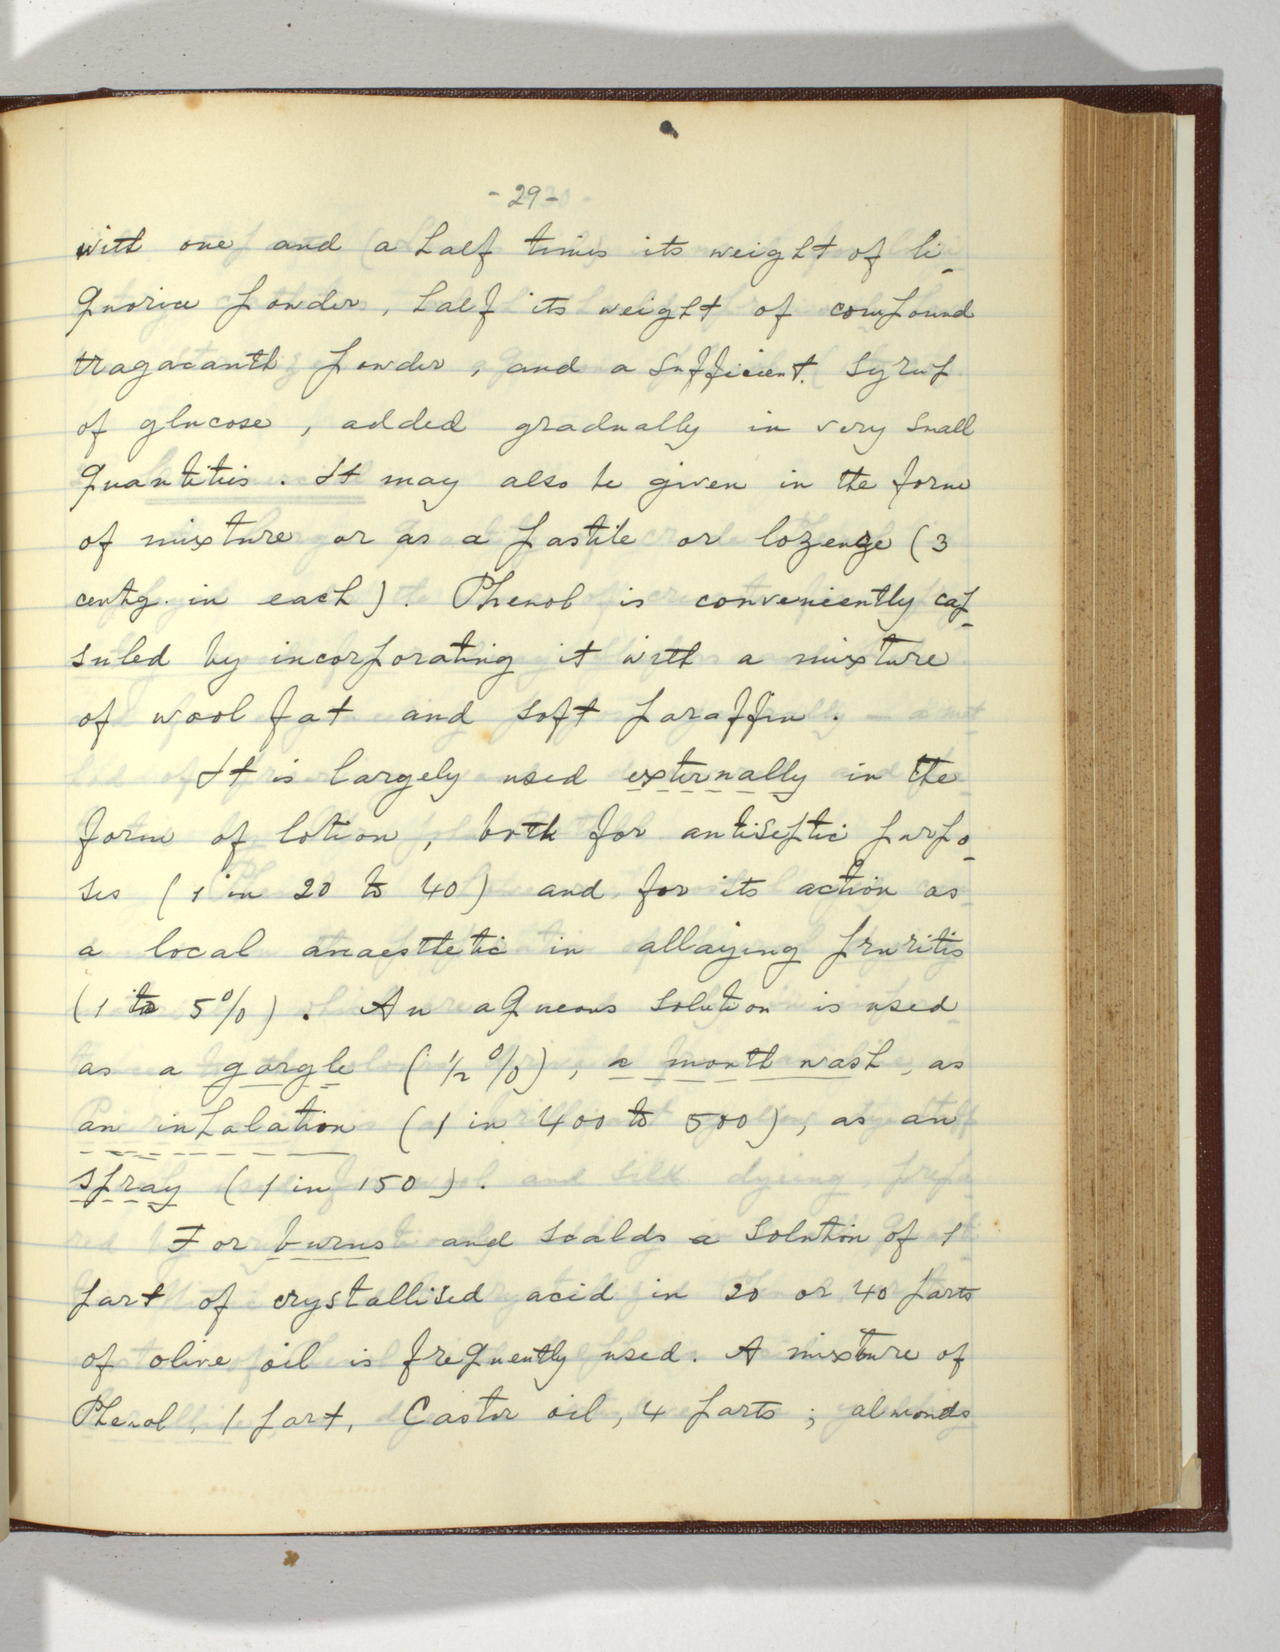 - 29 -
with one and a half times its weight of li-
quorice powder, half its weight of compound
tragacanth powder, and a sufficient syrup
of glucose, added gradually in very small
quantities. It may also be given in the form
of mixture or as a pastile or lozenge (3
centg. in each). Phenol is conveniently cap-
suled by incorporating it with a mixture
of wool fat and soft paraffin.
It is largely used externally in the
form of lotion, both for antiseptic purpo-
ses (1 in 20 to 40) and for its action as
a local anaesthetic in allaying pruritis
(1 to 5%). An aqueous solution is used
as a gargle (1/2 %), a mouth wash, as
an inhalation (1 in 400 to 500), as an
spray (1 in 150).
For burns and scalds a solution of 1
part of crystallised acid in 20 or 40 parts
of olive oil is frequently used. A mixture of
Phenol, 1 part, Castor oil, 4 parts; almonds